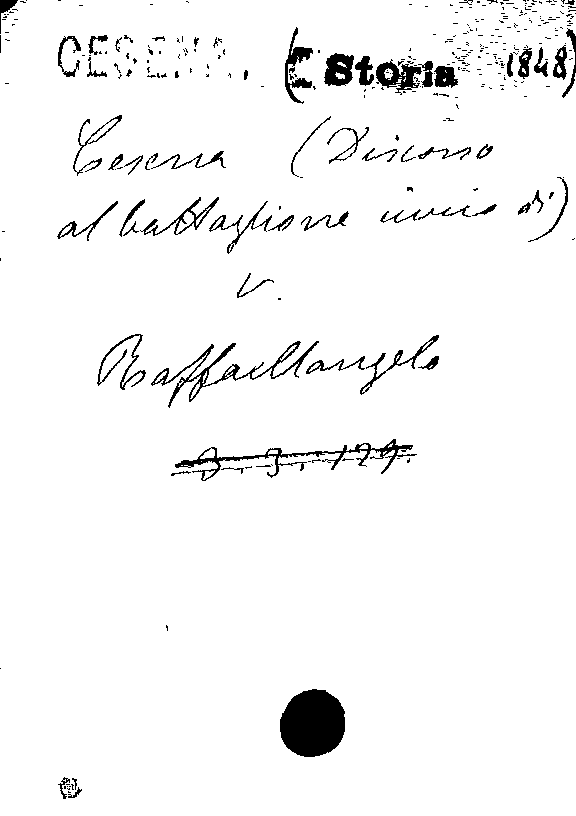 CESENA. (Storia 1848)
Cesena (Discorso
al battaglione civico di)
V.
Raffaellangelo
3. 3. 129.